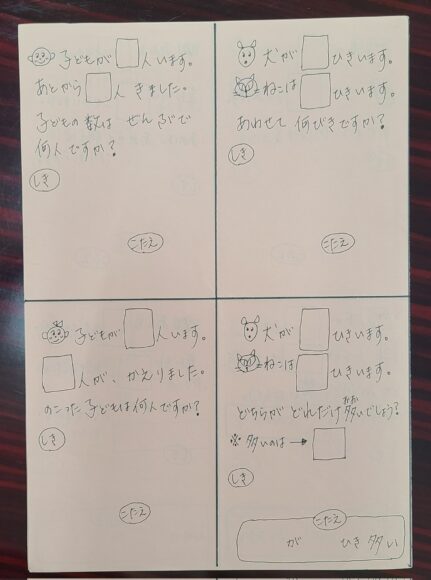 子どもが□人います。
あとから□人きました。
子どもの数はぜんぶで
何人ですか?
しき
こたえ
犬が□ひきいます。
ねこは□ひきいます。
あわせて何びきですか?
しき
こたえ
子どもが□人います。
□人が、かえりました。
のこった子どもは何人ですか?
しき
こたえ
犬が□ひきいます。
ねこは□ひきいます。
どちらがどれだけ多いでしょう?
おお
※多いのは→□
しき
こたえ
が ひき多い